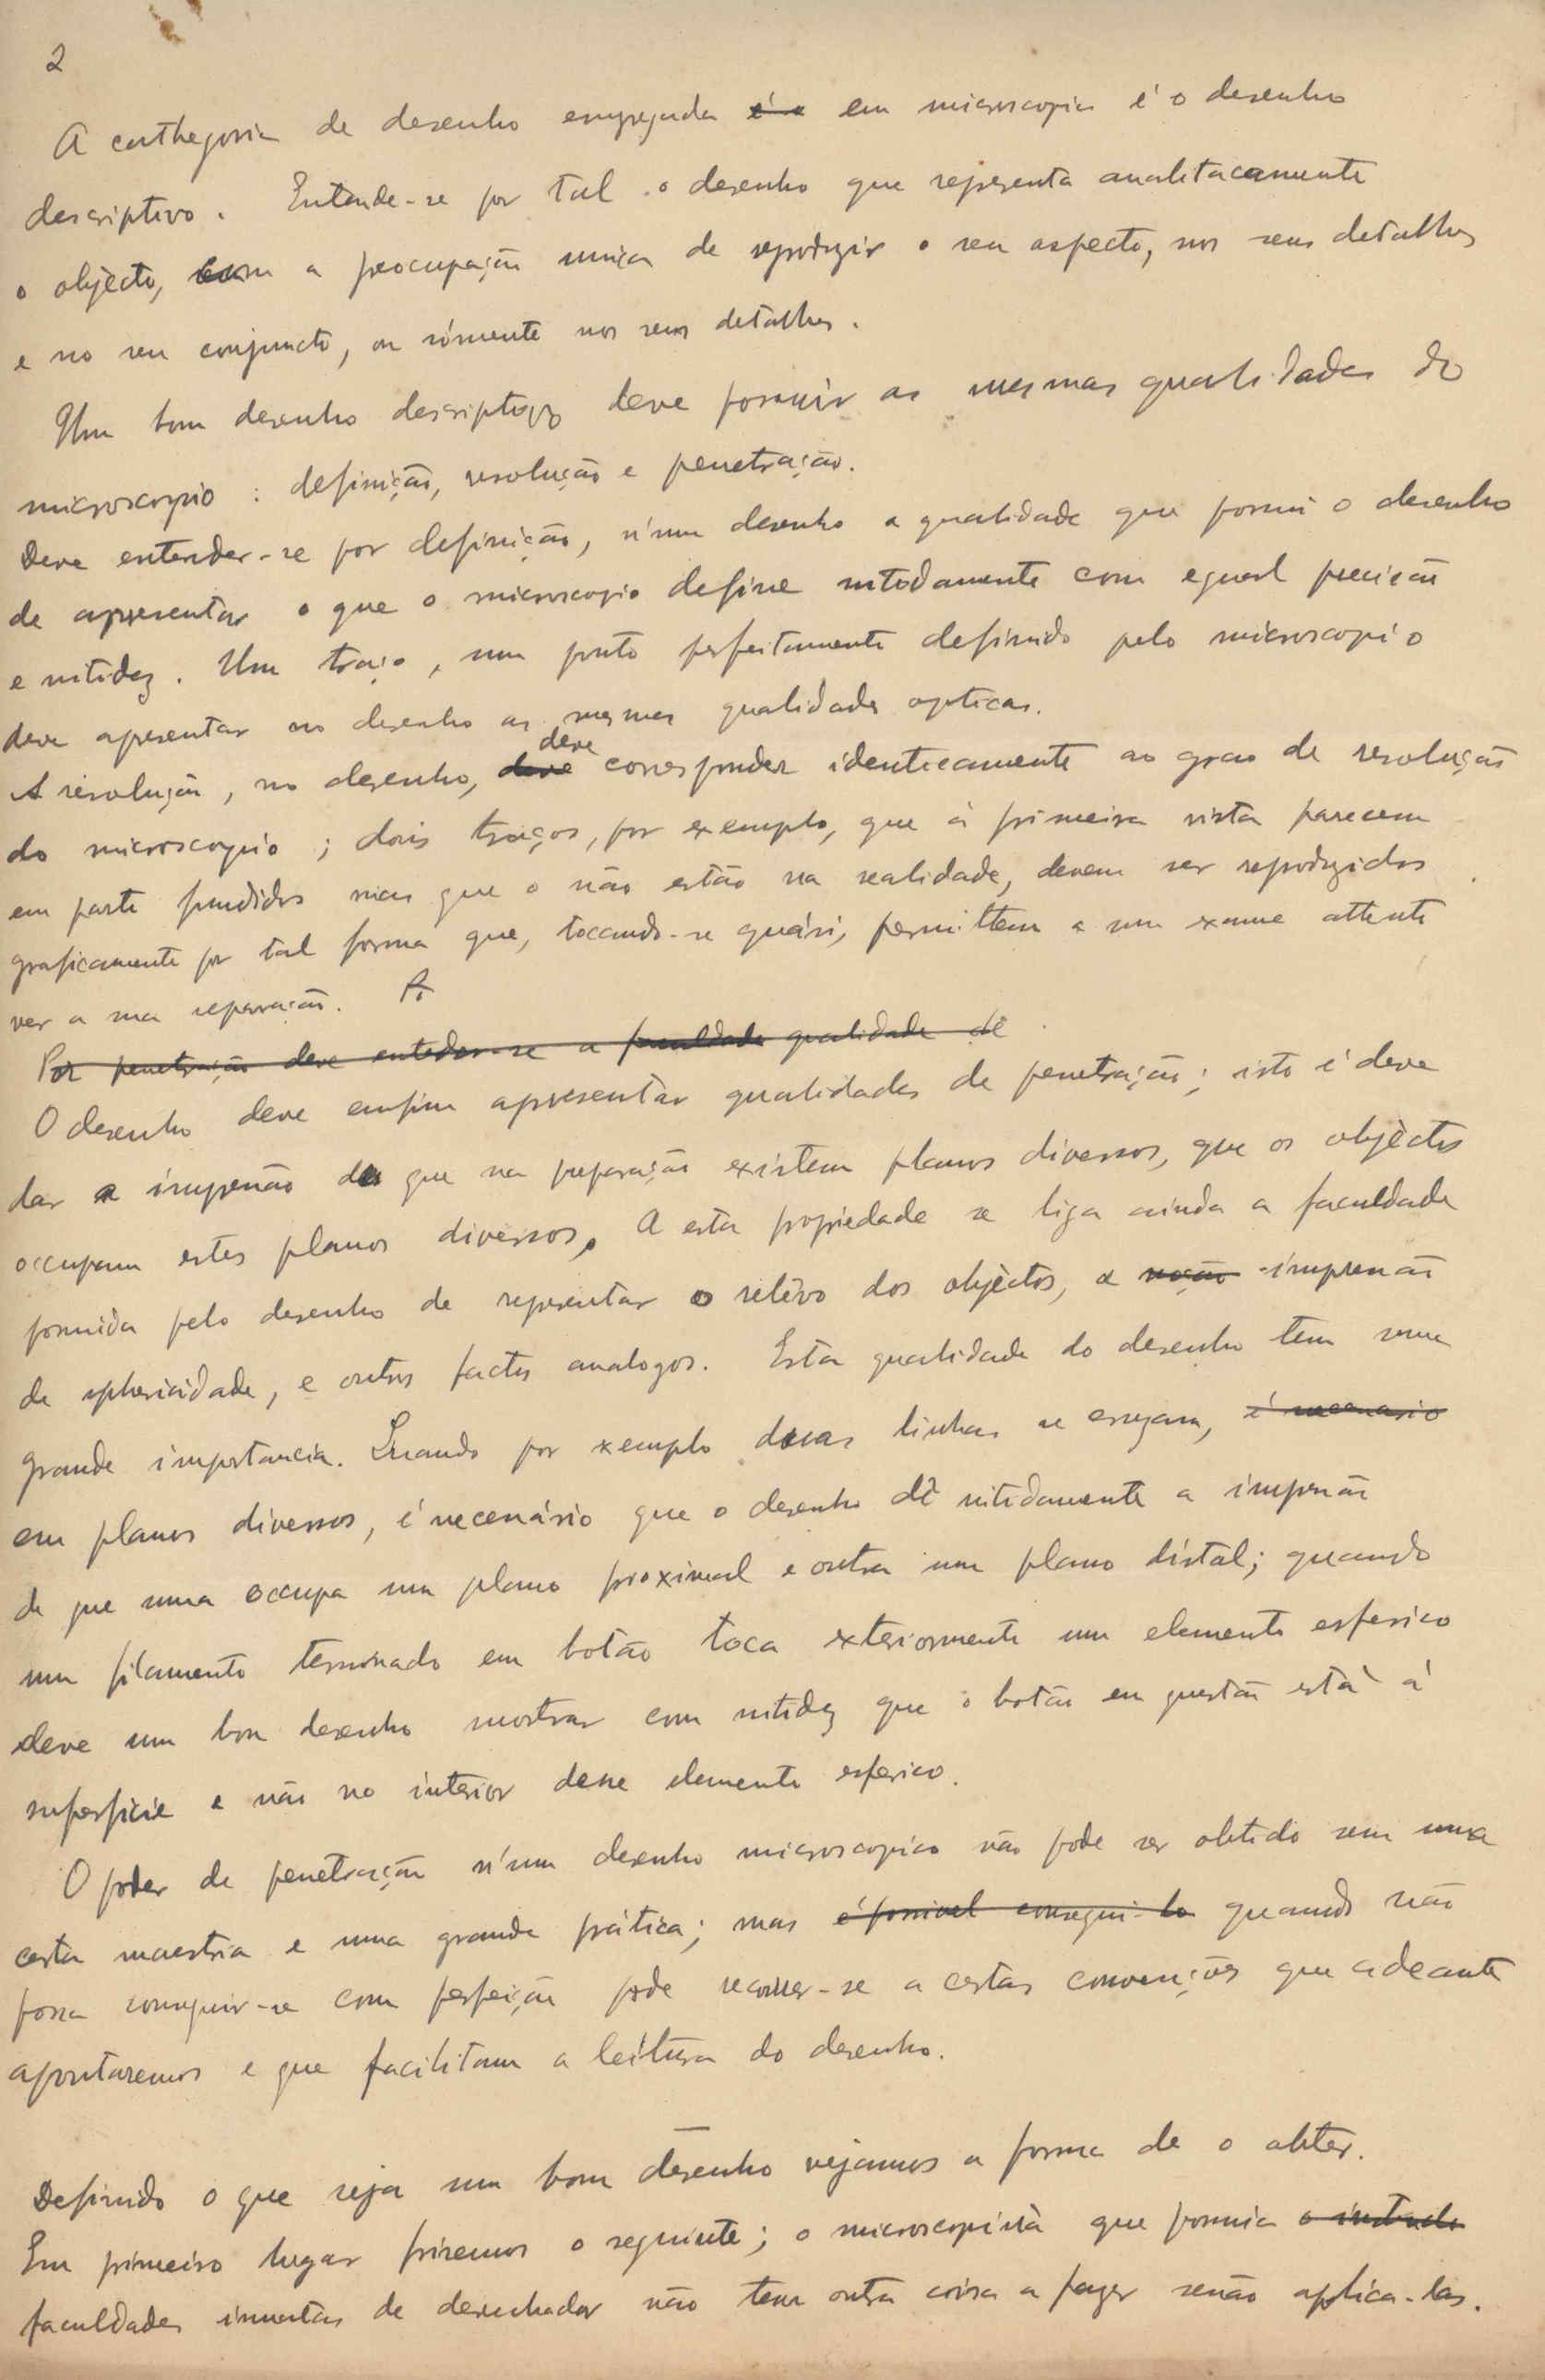 2
A cathegoria de desenho empregada é o em microscopia é o desenho
descriptivo. Entende-se por tal o desenho que representa analitacamente
o objécto, com a preocupação unica de reproduzir o seu aspecto, nos seus detalhes
e no seu conjuncto, ou sómente nos seus detalhes.
Um bom desenho descriptivo deve possuir as mesmas qualidades do
microscopio: definição, resolução e penetração.
Deve entender-se por definição, n'um desenho a qualidade que possui o desenho
de apresentar o que o microscopio define nitidamente com egual precisão
e nitidez. Um traço, um ponto perfeitamente definido pelo microscopio
deve apresentar no desenho as mesmas qualidades opticas.
deve
A resolução, no desenho, deve corresponder identicamente ao grao de resolução
do microscopio; dois traços, por exemplo, que á primeira vista parecem
em parte fundidos mas que o não estão na realidade, devem ser reproduzidos
graficamente por tal forma que, tocando-se quási, permittem a um exame attento
ver a sua separação. P.
Por penetração deve entender-se a faculdade qualidade de
O desenho deve emfim apresentar qualidades de penetração; isto é deve
dar a impressão de que na preparação existem planos diversos, que os objèctos
occupam estes planos diversos. A esta propriedade se liga ainda a faculdade
possuida pelo desenho de representar o relêvo dos objèctos, a noção impressão
de sphericidade, e outros factos analogos. Esta qualidade do desenho tem uma
grande importancia. Quando por exemplo duas linhas se cruzam, é necessario
em planos diversos, é necessário que o desenho dê nitidamente a impressão
de que uma occupa um plano proximal e outra um plano distal; quando
um filamento terminado em botão toca exteriormente um elemento esferico
deve um bom desenho mostrar com nitidez que o botão em questão está á
superficie e não no interior desse elemento esferico.
O poder de penetração n'um desenho microscopico não pode ser obtido sem uma
certa maestria e uma grande prática; mas é possivel consegui-lo quando não
possa conseguir-se com perfeição pode recorrer-se a certas convenções que adeante
apontaremos e que facilitam a leitura do desenho.
Definido o que seja um bom desenho vejamos a forma de o obter.
Em primeiro lugar frisemos o seguinte; o microscopista que possuia o
faculdades innatas de desenhador não tem outra coisa a fazer senão aplica-las.